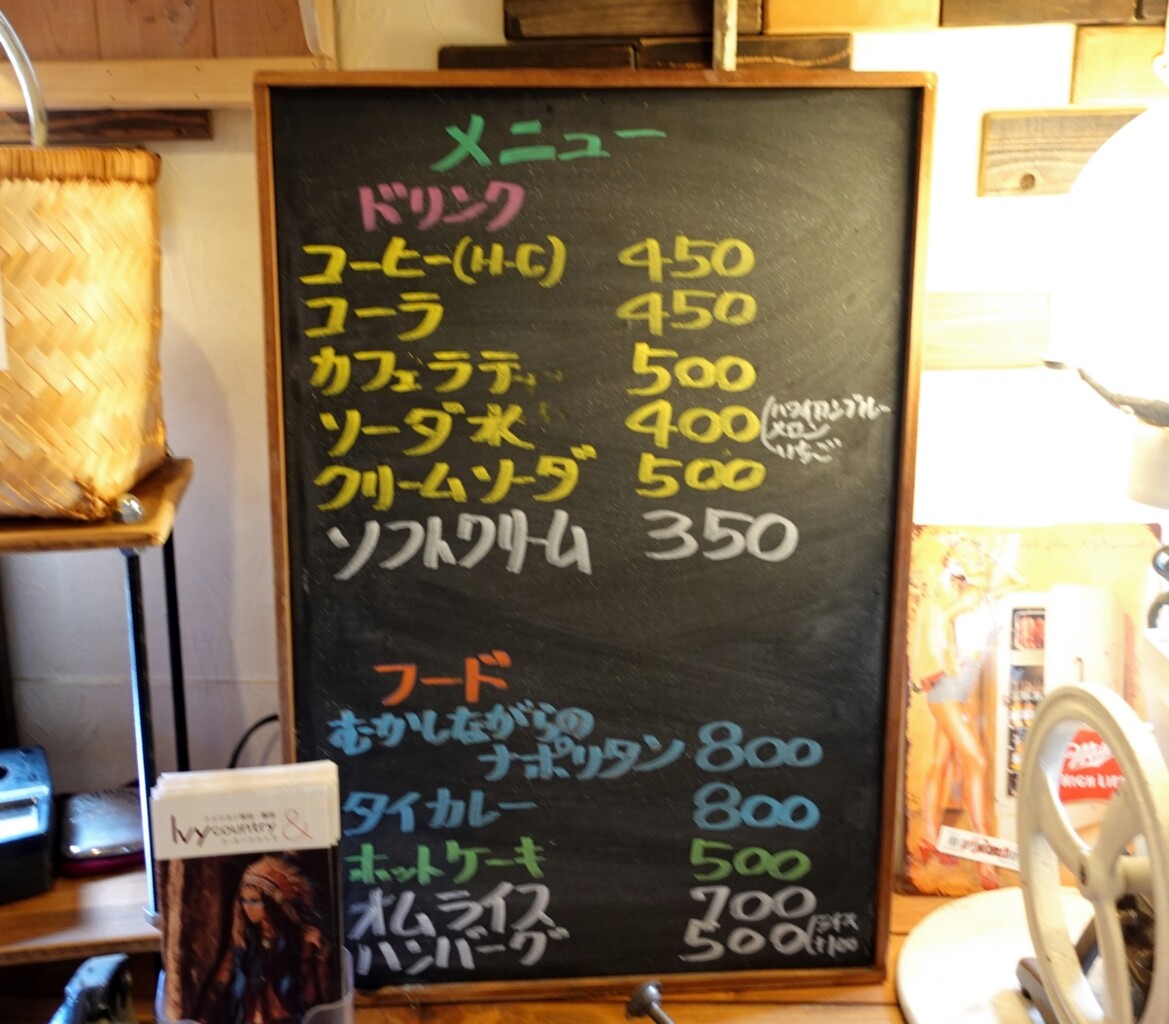 メニュー
ドリンク
コーヒー(H・C) 450
コーラ 450
カフェラテ 500
ソーダ水 400 (ハワイアンブルー
メロン
いちご
クリームソーダ 500
ソフトクリーム 350
フード
むかしながらの
ナポリタン 800
タイカレー 800
ホットケーキ 500
オムライス 700
ハンバーグ 500 (ライス
+100
Ivy country &
HIGH LIFE